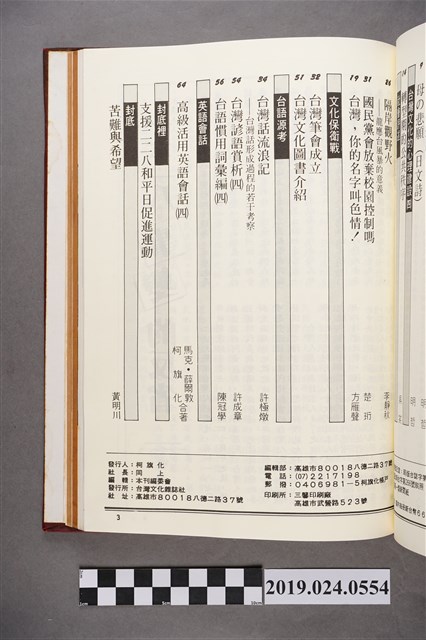 母の悲願（日文詩）
台灣文化的心理建設 四
26 隔岸觀野火 李靜秋
龍應台風暴的意義
31 國民黨會放棄校園控制嗎 楚珩
19 台灣，你的名字叫色情！ 方雁聲
文化保衛戰
32 台灣筆會成立
51 台灣文化圖書介紹
台語源考
34 台灣話流浪記 許極燉
—台灣話形成過程的若干考察
54 台灣諺語賞析㈣ 許成章
56 台語慣用詞彙編㈣ 陳冠學
英語會話
64 高級活用英語會話㈣ 馬克・薛爾敦 柯旗化 合著
封底裡
支援二二八和平日促進運動
封底
苦難與希望 黃明川
發行人：柯旗化
社長：同上
編輯：本刊編委會
發行所：台灣文化雜誌社
社址：高雄市80018八德二路37號
編輯部：高雄市80018八德二路37號
電話：(07)2217198
郵撥：0406981-5柯旗化帳戶
印刷所：三馨印刷廠
高雄市武營路523號
3
2019.024.0554